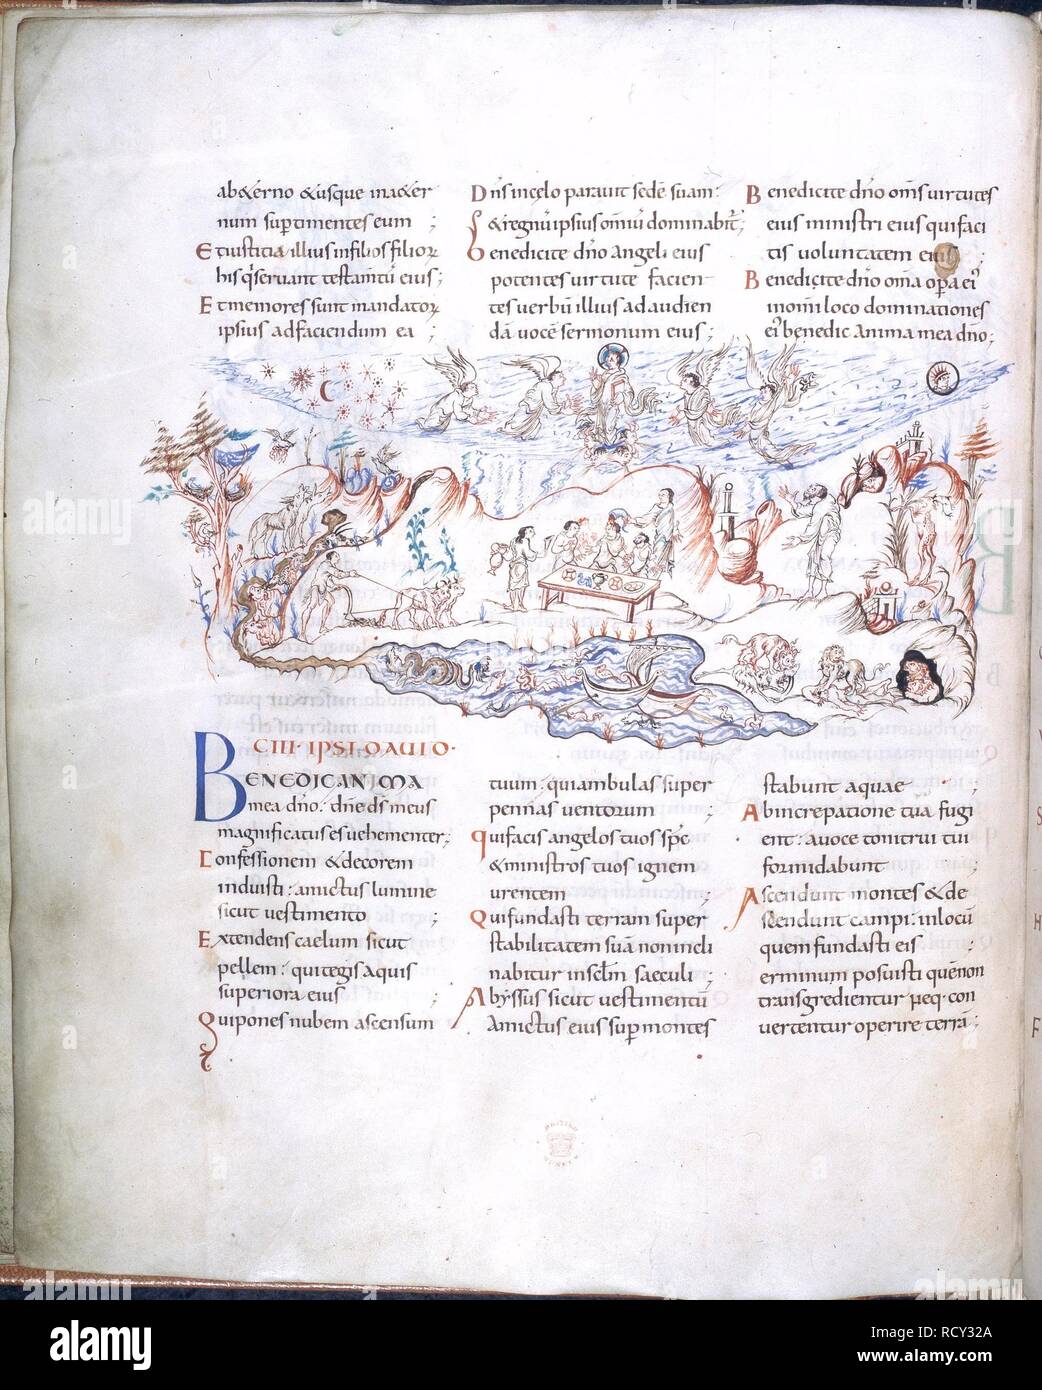 ab&érno &usque ina&ér
num sup timentes eum ;
Et iustitia illius infilios filior̄
his q̄ seruant testam̄tū eius ;
Et memores sunt mandator̄
ipsius adfaciendum ea ;
Dn̄s incelo parauit sedē suam :
& regnū ipsius omniū dominabit̄ ;
Benedicite dn̄o angeli eius
potentes uirtute facien
tes uerbū illius ad audien
dā uocē sermonum eius ;
Benedicite dn̄o om̄s uirtutes
eius ministri eius qui faci
tis uoluntatem eius ;
Benedicite dn̄o om̄a op̄a ei'
inomni loco dominationes
ei' benedic anima mea dn̄o ;
CIII · IPSI DAVID ·
BENEDIC ANIMA
mea dn̄o : dn̄e ds̄ meus
magnificatus es uehementer ;
Confessionem & decorem
induisti : amictus lumine
sicut uestimento ;
Extendens caelum sicut
pellem : qui tegis aquis
superiora eius ;
Qui pones nubem ascensum
tuum : qui ambulas super
pennas uentorum ;
Qui facis angelos tuos sp̄c
& ministros tuos ignem
urentem ;
Qui fundasti terram super
stabilitatem suā non incli
nabitur insc̄lm saeculi ;
Abyssus sicut uestimentū
amictus eius sup montes
stabunt aquae
Ab increpatione tua fugi
ent : a uoce tonitrui tui
formidabunt
Ascendunt montes & de
scendunt campi : inlocū
quem fundasti eis ;
erminum posuisti quē non
transgredientur neq · con
uertentur operire terrā ;
BRITISH
MUSEUM
alamy
Image ID: RCY32A
www.alamy.com